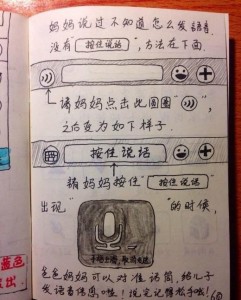 妈妈说过不知道怎么发语音
没有“按住说话”,方法在下面
请妈妈点击此圆圈“ ”,
之后变为如下样子.
按住说话
请妈妈按住“按住说话”
出现“ ”的时候,
手指上滑,取消发送
爸爸妈妈可以对准话筒,给儿子
发语音信息啦!说完记得松手啦!
蓝色